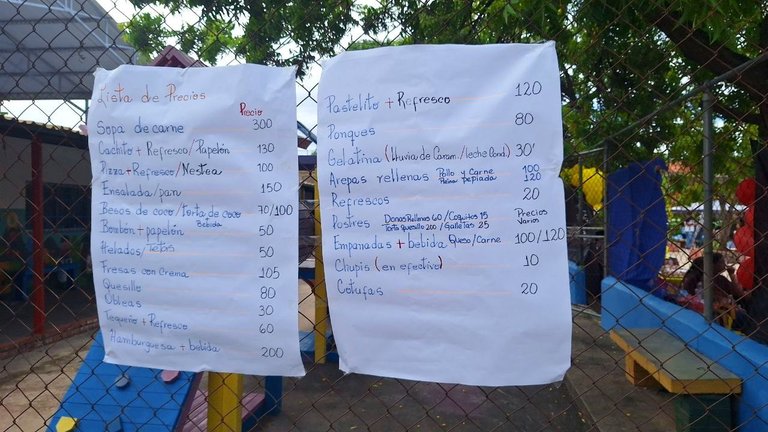 Lista de Precios
Precio
Sopa de carne 300
Cachito + Refresco/Papelón 130
Pizza + Refresco/Nestea 100
Ensalada/pan 150
Besos de coco/torta de coco 70/100
Bebida
Bombón + papelón 50
Helados/Tetas 50
Fresas con Crema 105
Quesillo 80
Obleas 30
Tequeño + Refresco 60
Hamburguesa + bebida 200
Pastelito + Refresco 120
Ponques 80
Gelatina (lluvia de Caram./leche Cond.) 30
Arepas rellenas Pollo y Carne 100
Reina pepiada 120
Refrescos 20
Postres Donas Rellenas 60/Coquitos 15 Precios
Torta quesillo 200/Galletas 25 Varios
Empanadas + bebida Queso/Carne 100/120
Chupis (en efectivo) 10
Cotufas 20